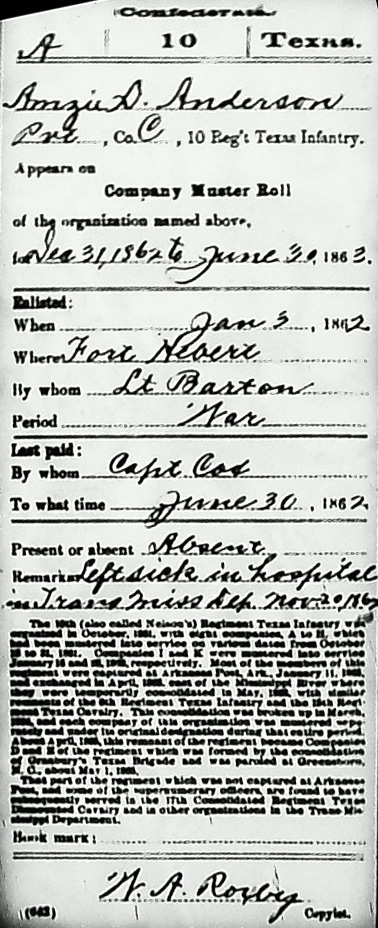 Confederate.
A | 10 | Texas.
Amzie D. Anderson
Pvt, Co. C, 10 Reg't Texas Infantry.
Appears on
Company Muster Roll
of the organization named above,
for Dec 31, 1862 to June 30, 1863.
Enlisted:
When Jan 3, 1862
Where Fort Hebert
By whom Lt Barton
Period War
Last paid:
By whom Capt Cos
To what time June 30, 1862
Present or absent Absent
Remarks Left sick in hospital
in Trans Miss Dep. Nov 20 1862
The 10th (also called Nelson's) Regiment Texas Infantry was
organized in October, 1861, with eight companies, A to H, which
had been mustered into service on various dates from October
to 31, 1861. Companies I and K were mustered into service
January 16 and 1862, respectively. Most of the members of this
regiment were captured at Arkansas Post, Ark., January 11, 1863,
and exchanged in April, 1863, east of the Mississippi River where
they were temporarily consolidated in May, 1863, with similar
remnants of the 6th Regiment Texas Infantry and the 15th Regi-
ment Texas Cavalry. This consolidation was broken up in
and each company of this organization was mustered sepa-
rately and under its original designation during that entire period.
In April, 1865, this remnant of the regiment became Companies
and E of the regiment which was formed by the consolidation
of Granbury's Texas Brigade and was paroled at Greensboro,
N. C., about May 1, 1865.
That part of the regiment which was not captured at Arkansas
Post, and some of the supernumerary officers, are found to have
subsequently served in the 17th Consolidated Regiment Texas
Dismounted Cavalry and in other organizations in the Trans-Mis-
sissippi Department.
Book mark:
W. A. Roxby
(642) Copyist.